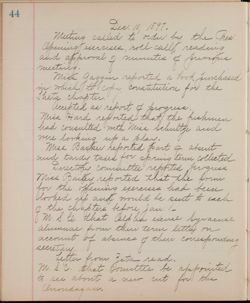 44
Dec. 11, 1897.
Meeting called to order by the Pres.
Opening exercises, roll call, reading
and approval of minutes of previous
meeting.
Miss Gaggin reported a book purchased
in which to copy constitution for the
Theta chapter.
Accepted as report of progress.
Miss Hard reported that the fishmen
had consulted with Miss Schultze and
were looking up a place.
Miss Barker reported part of
and tardy taxes for spring term collected
Directory committee reported progress
Miss reported that the form
for the opening exercises had been
looked up and would be sent to each
of the chapters before Jan. 1.
M. S. C. that Alpha excuse Syracuse
alumnae from their term letter on
account of absence of their corresponding
secretary.
Letter from Zeta read.
M. S. C. that committee be appointed
to see about a new cut for the